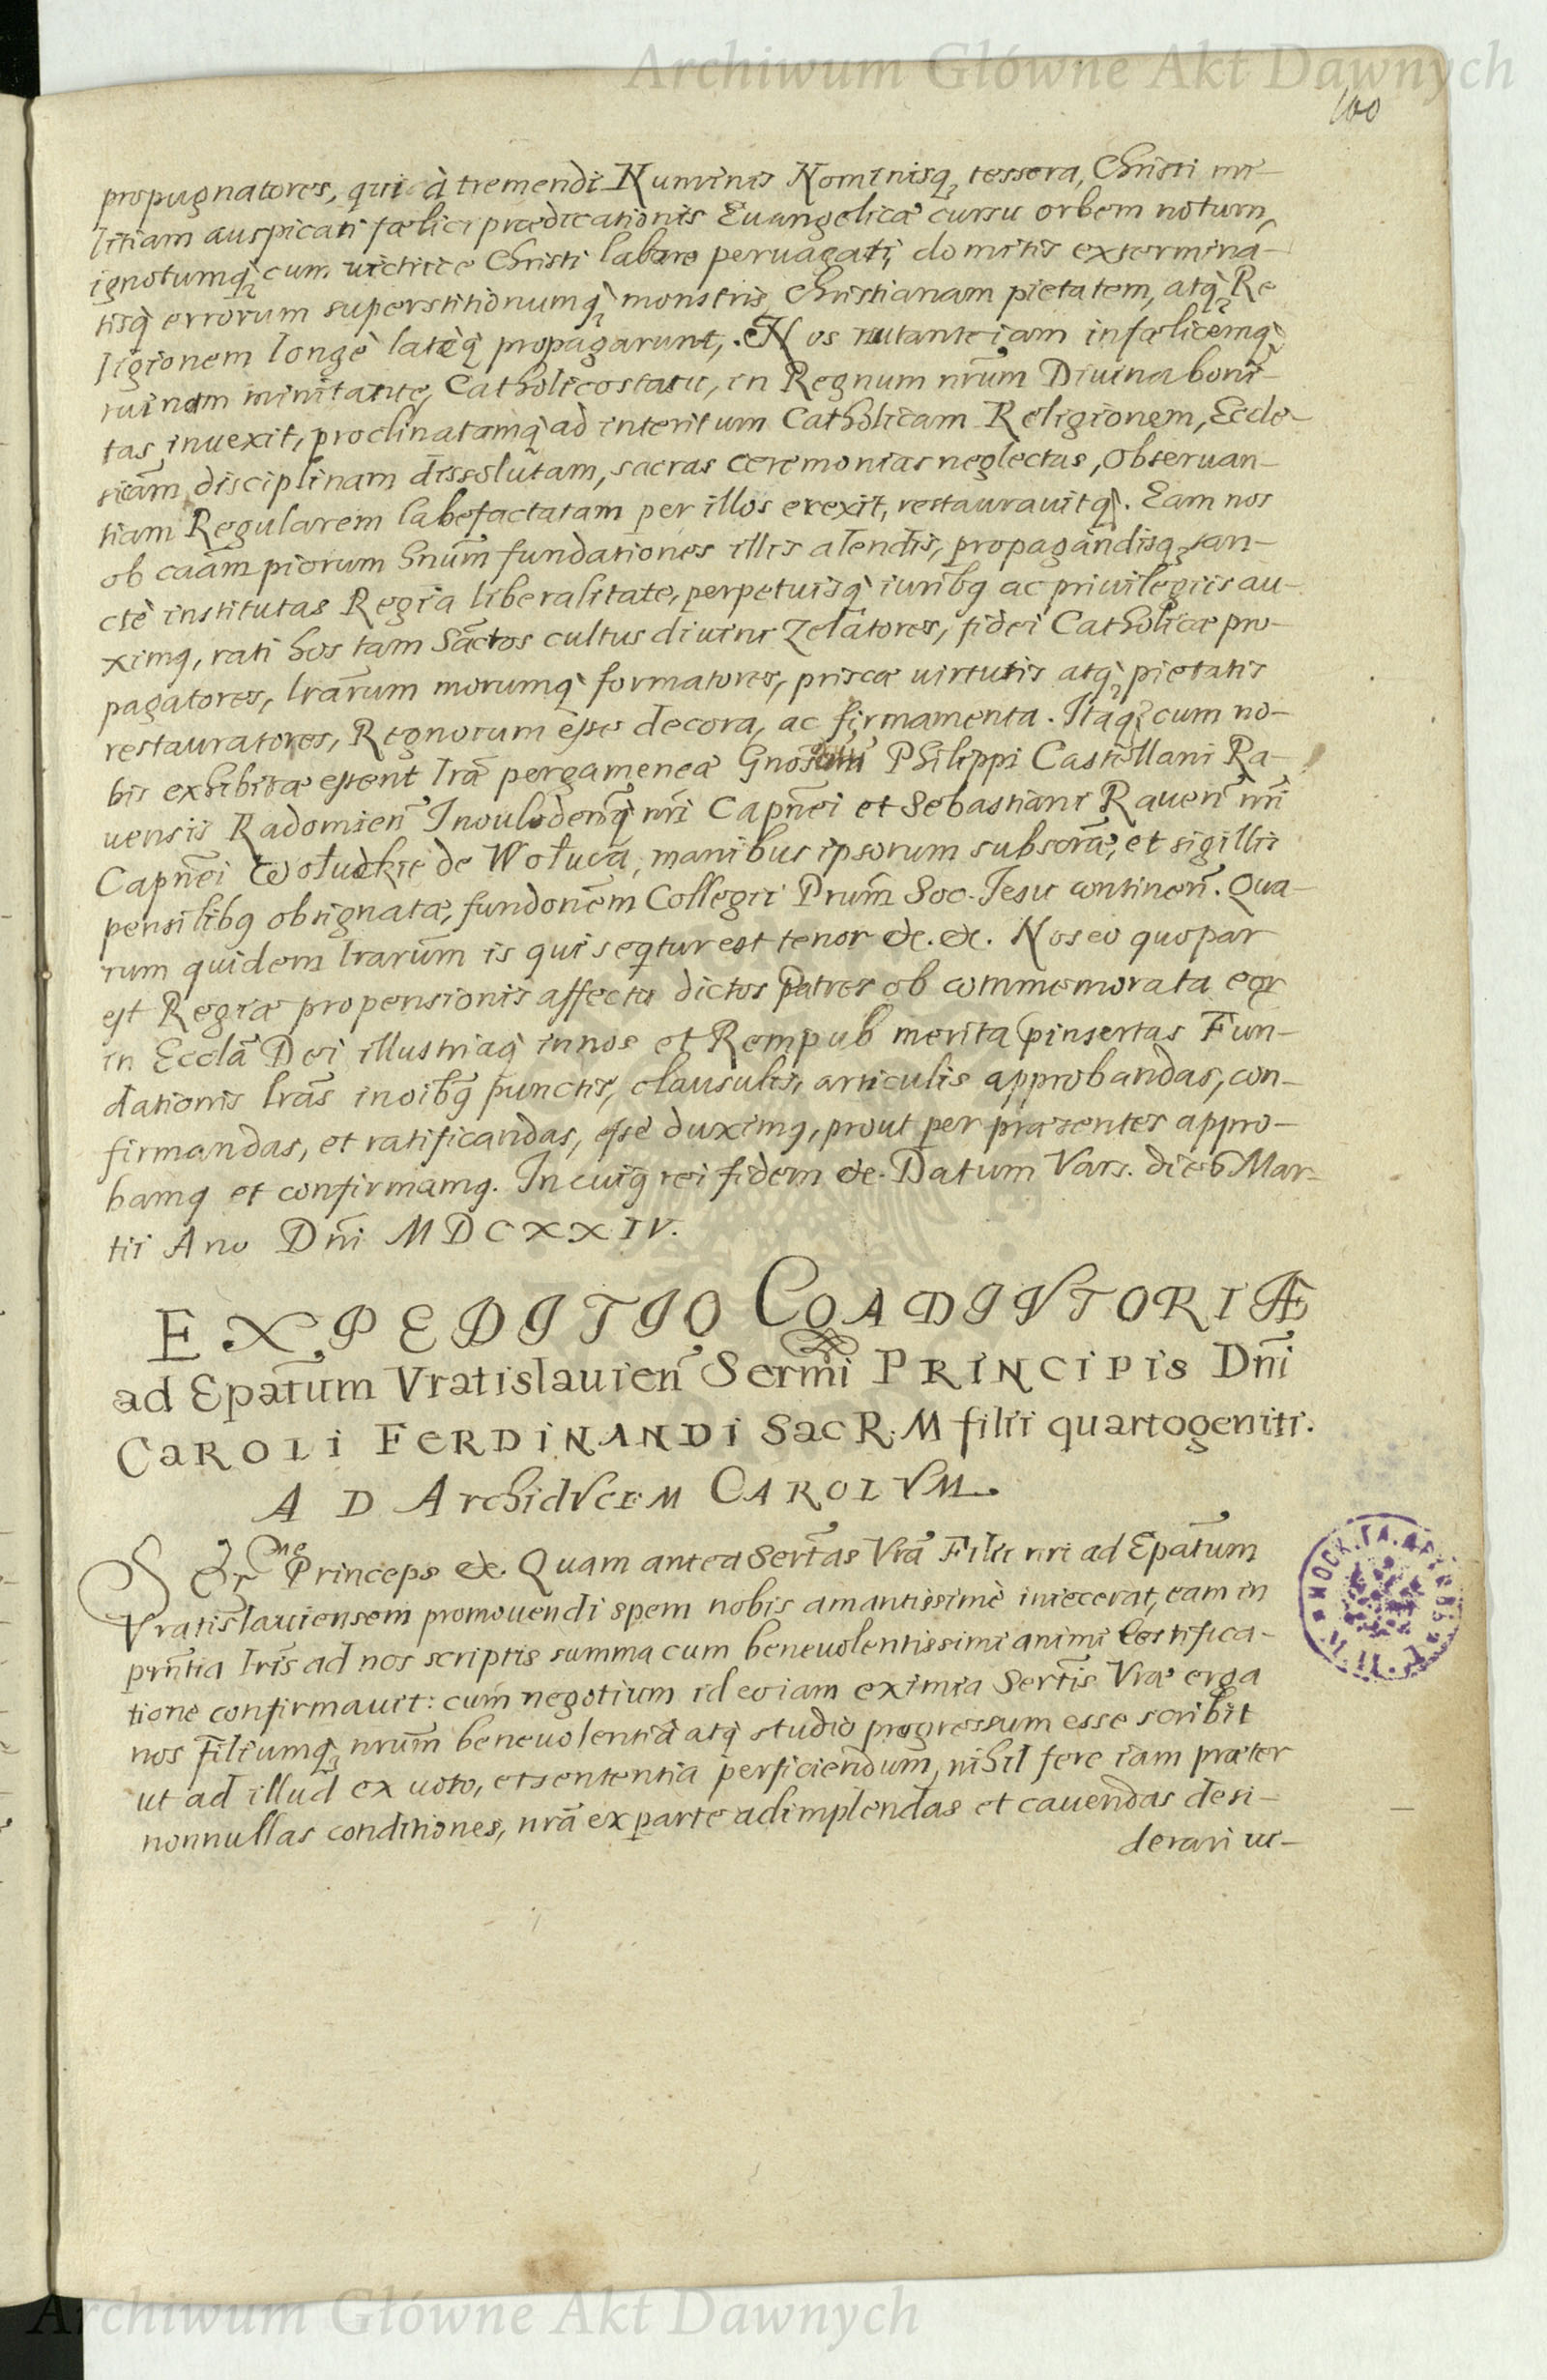 Archiwum Główne Akt Dawnych
100
propugnatores, qui à tremendi Numinis Nominisq; tessera, Christi mi-
litiam auspicati fælici prædicationis Euangelicæ cursu orbem notum,
ignotumq́; cum uictrice Christi labaro peruagati, domitis extermina-
tisq́ errorum superstitionumq́; monstris, Christianam pietatem, atq́; Re
ligionem longè latèq́ propagarunt, Nos nutante iam infælicemq́;
ruinam minitante, Catholico statu, in Regnum nr̃um Diuina boni-
tas inuexit, proclinatamq́ ad interitum Catholicam Religionem, Eccle-
sicãm disciplinam dissolutam, sacras ceremonias neglectas, Obseruan-
tiam Regularem labefactatam per illos erexit, restaurauitq́. Eam nos
ob cãam piorum hñum fundationes illis alendis, propagandisq; san-
ctè institutas Regia liberalitate, perpetuisq́ iuribq ac priuilegiis au-
ximq, rati hos tam Sãctos cultus diuini Zelatores, fidei Catholicæ pro-
pagatores, lr̃arum morumq́ formatores, priscæ uirtutis atq́; pietatis
restauratores, Regnorum esse decora, ac firmamenta. Itaq́; cum no-
bis exhibitæ essent lr̃æ pergameneæ Gnosorum Philippi Castellani Ra-
uensis Radomien̄ Inoulodenq́ nr̃i Capnēi et Sebastiani Rauen̄ nr̃i
Capnēi Wołuckie de Wołuca, manibus ipsorum subscræ, et sigillis
pensilibq obsignatæ, fundonēm Collegii Prum̃ Soc. Iesu continen̄. Qua-
rum quidem lrarum̃ is qui seqtur est tenor &c. &c. Nos eo quo par
est Regiæ propensionis affectu dictos Patres ob commemorata eor
in Ecclã Dei illustriaq́ in nos et Rempub merita pinsertas Fun-
dationis lrãs in oibq́ punctis, clausulis, articulis approbandas, con-
firmandas, et ratificandas, esse duximq, prout per præsentes appro-
bamq et confirmamq. In cuiq́ rei fidem &c. Datum Vars. die 6 Mar-
tii Ano Dñi MDCXXIV.
EXPEDITIO COADIVTORIÆ
ad Epatum̃ Vratislauien̄ Sermĩ PRINCIPIS Dñi
CAROLI FERDINANDI Sac R. M filii quartogeniti.
AD ArchidVCEM CAROLVM.
Serme Princeps &c. Quam antea Sertãs Vrã Filii nri ad Epatum̃
Vratislauiensem promouendi spem nobis amantissimè iniecerat, eam in
prñtia lrĩs ad nos scriptis summa cum beneuolentissimi animi testifica-
tione confirmauit: cum negotium id eo iam eximia Sertĩs Vræ erga
nos Filiumq́; nrum̃ beneuolentiã atq́ studio progressum esse scribit
ut ad illud ex uoto, et sententia perficiendum, nihil fere iam præter
nonnullas conditiones, nrã ex parte adimplendas et cauendas desi-
derari ui-
Archiwum Główne Akt Dawnych